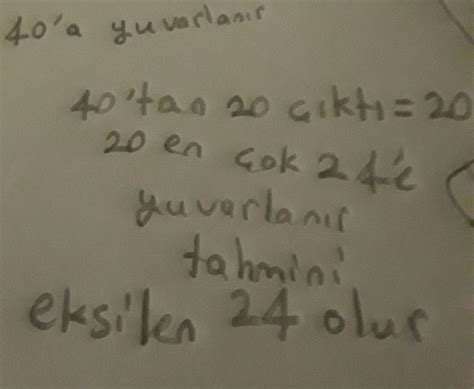 40'a yuvarlanır
40'tan 20 çıktı = 20
20 en çok 24'e
yuvarlanır
tahmini
eksilen 24 olur